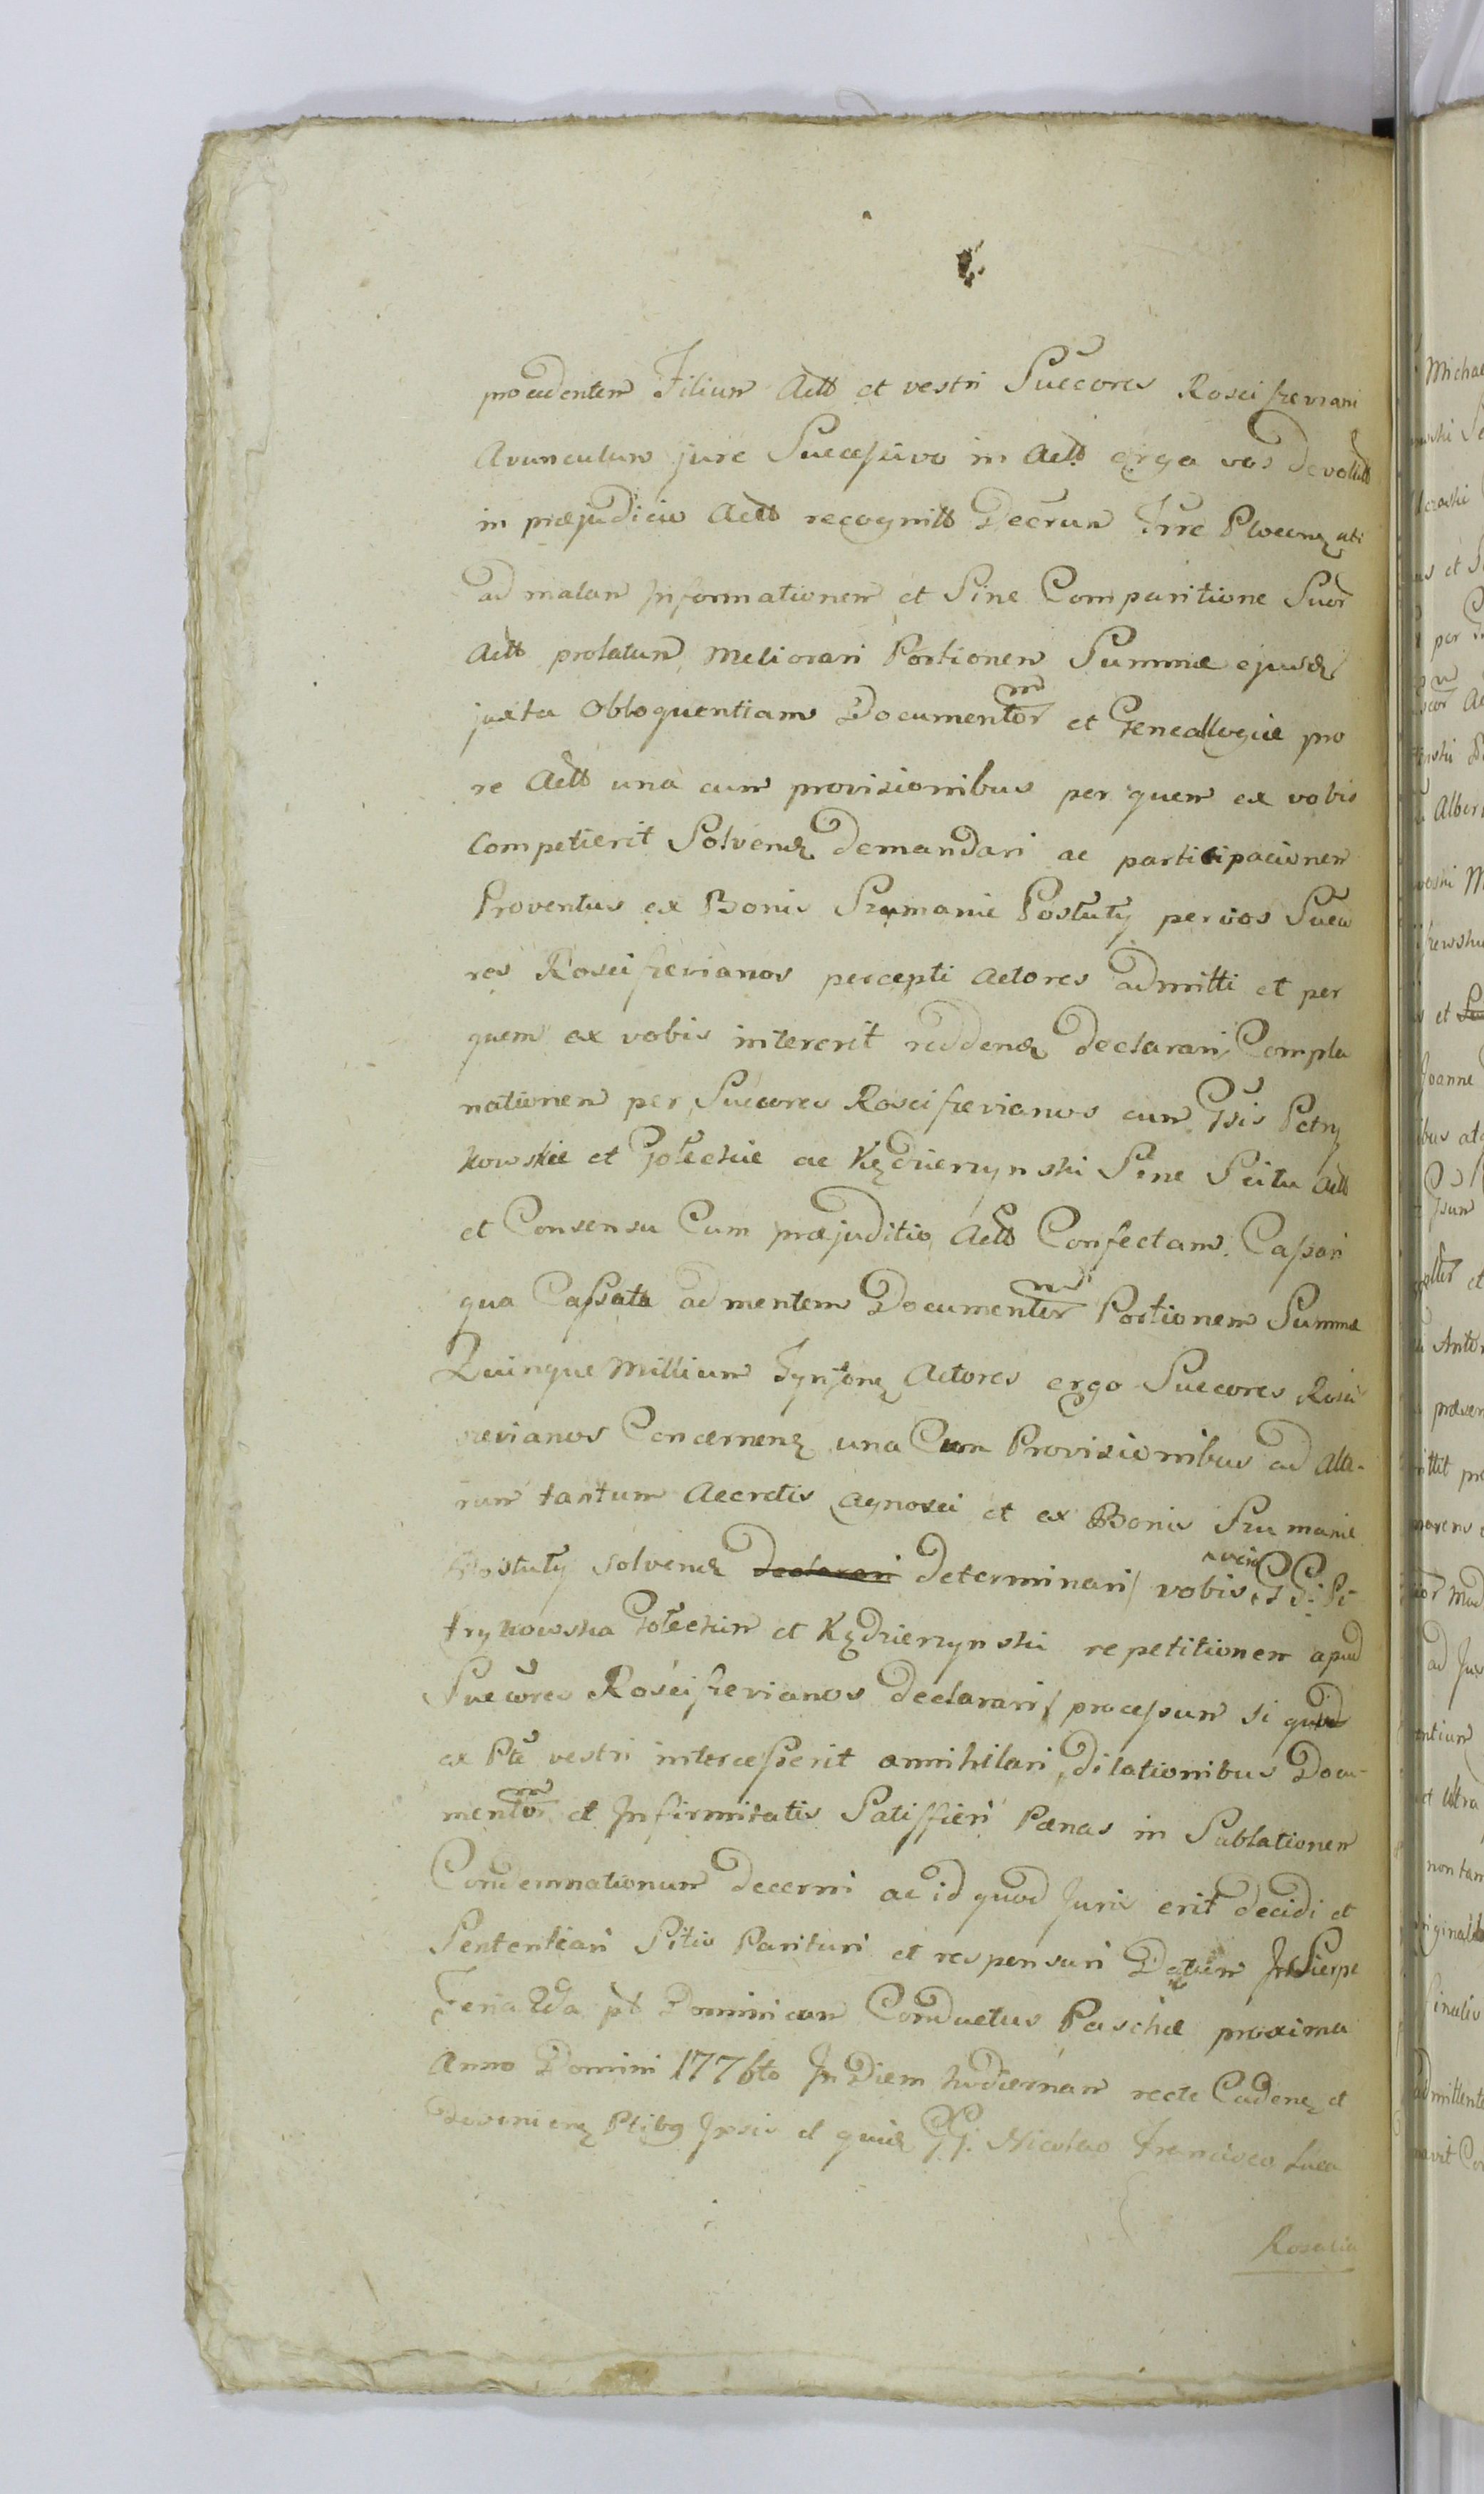 procedentem Filium Actt et vestri Succores Rosciszeviani
Avunculum jure Successivo in Actt erga vos Devolutt
in præjudiciu Actt recognitt Decrum Trre Plocen ubi
ad malam Informationem et Sine Comparitione Suor
Actt prolatum, Meliorari Portionem Summæ ejusd
juxta Obloquentiam Documentorm et Geneallogiæ pro
re Actt una cum provisionibus per quem ex vobis
Competierit Solvend demandari ac participacionem
Proventus ex Bonis Szumanie Postuty per vos Succo
res Rosciszevianos percepti Actores admitti et per
quem ex vobis intererit reddend declarari, Compla
nationem per Succores Rosciszevianos cum Gsis Petry
kowskie et Golechie ac Kędzierzynski Sine Scitu Actt
et Consensu Cum præjuditio Actt Confectam Cassari
qua Cassata ad mentem Documentorm Portionem Summæ
Quinque Millium Tynfone Actores ergo Succores Rosci
szevianos Concernen una Cum Provisionibus ad Alte-
rum tantum Accretis agnosci et ex Bonis Szumanie
Postuty solvend declarari determinari, vobis vero GG. Pe
trykowska Golechin et Kędzierzynski repetitionem apud
Succores Rosciszevianos declarari, processum si quid
ex Pte vestri intercesserit annihilari, dilationibus Docu-
mentorm et Infirmitatis Satisfieri Pænas in Sublationem
Condemnationum decerni ac id quod Juris erit decidi et
Sententiari Sitis Parituri et responsuri Datum In Sierpc
Feria 2da pt Dominicam Conductus Paschæ proxima
Anno Domini 1776to In Diem hodiernam recte Caden et
Devenien Ptibq Ipsis et quid GG. Nicolao Francisco Luca
Rosalia